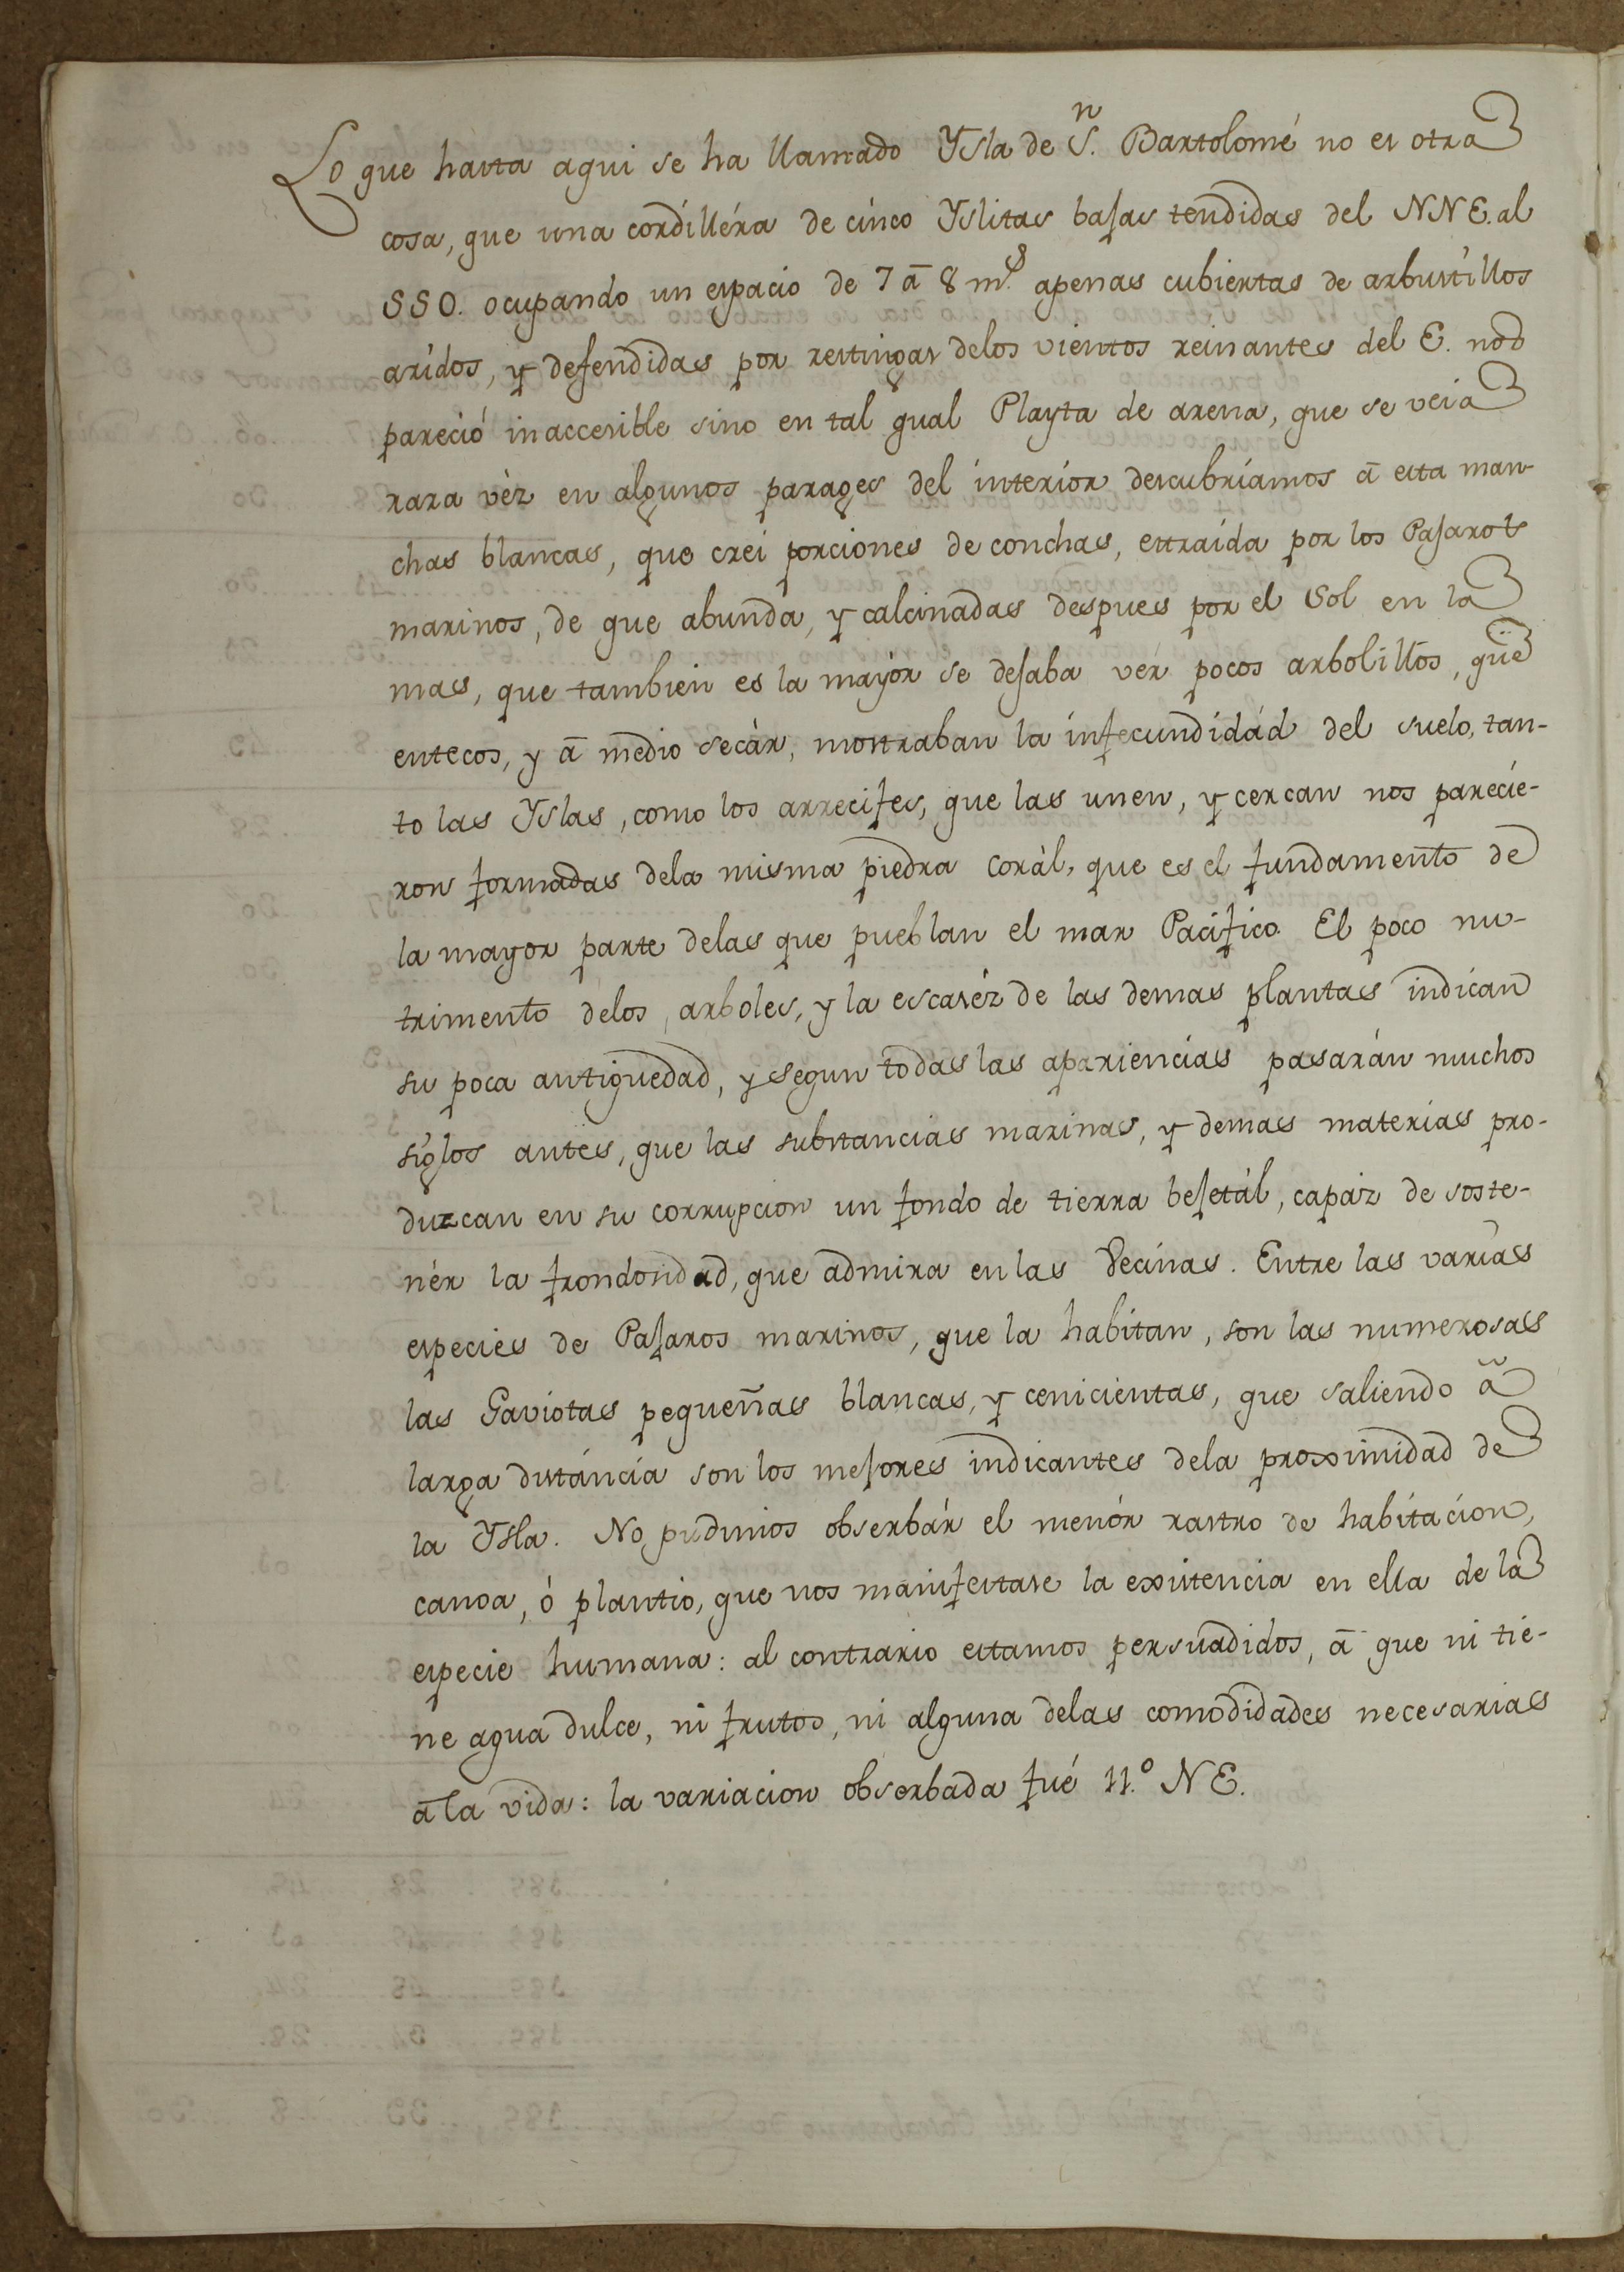 Lo que hasta aqui se ha llamado Ysla de S.n Bartolomé no es otra
cosa, que una cordilléra de cinco Yslitas bajas tendidas del NNE. al
SSO. ocupando un espacio de 7 â 8 m.s apenas cubiertas de arbustillos
aridos, y defendidas por restingas delos vientos reinantes del E. nos
pareció inaccesible sino en tal qual Playta de arena, que se veia
rara vèz en algunos parages del interior descubriamos â esta man-
chas blancas, que crei porciones de conchas, estraida por los Pajarots
marinos, de que abunda, y calcinadas despues por el Sol en la
mas, que tambien es la mayòr se dejaba ver pocos arbolillos, que
entecos, y â medio secàr, mostraban la infecundidád del suelo, tan-
to las Yslas, como los arrecifes, que las unen, y cercan nos parecie-
ron formadas dela misma piedra coràl, que es el fundamento de
la mayor parte delas que pueblan el mar Pacifico. El poco nu-
trimento delos arboles, y la escaséz de las demas plantas indican
su poca antiguedad, y segun todas las apariencias pasarán muchos
siglos antes, que las substancias marinas, y demas materias pro-
duzcan en su corrupcion un fondo de tierra bejetàl, capaz de soste-
nér la frondondad, que admira en las Vecinas. Entre las varias
especies de Pajaros marinos, que la habitan, son las numerosas
las Gaviotas pequeñas blancas, y cenicientas, que saliendo â
larga distáncia son los mejores indicantes dela proximidad de
la Ysla. No pudimos obserbár el menór rastro de habitacion,
canoa, ó plantio, que nos manifestase la existencia en ella de la
especie humana: al contrario estamos persuadidos, â que ni tie-
ne agua dulce, ni frutos, ni alguna delas comodidades necesarias
âla vida: la variacion obserbada fué 11.º NE.